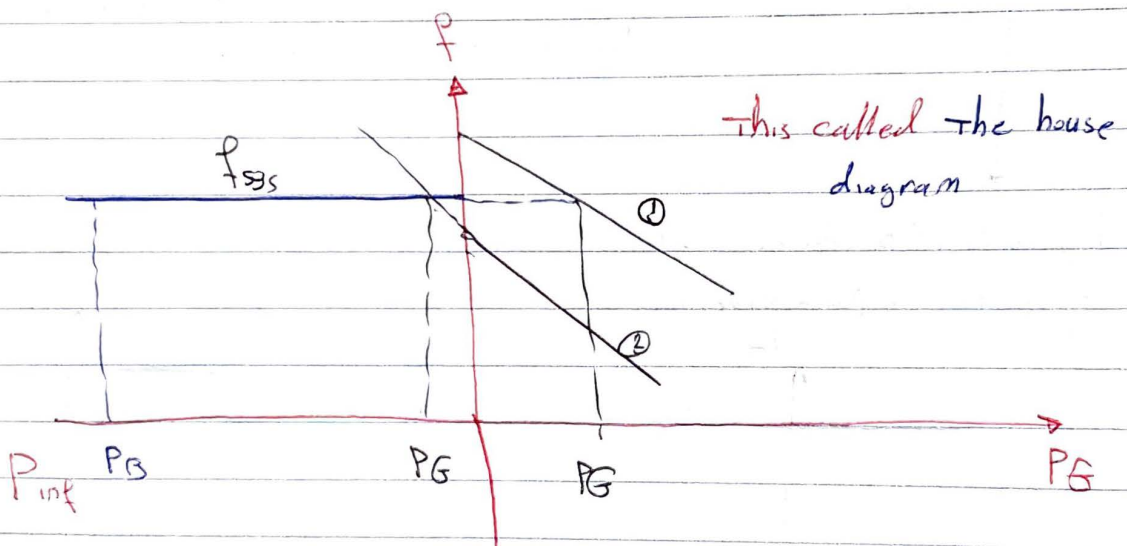 f
This called The house
diagram
fsys
①
②
Pinf
PB
PG
PG
PG